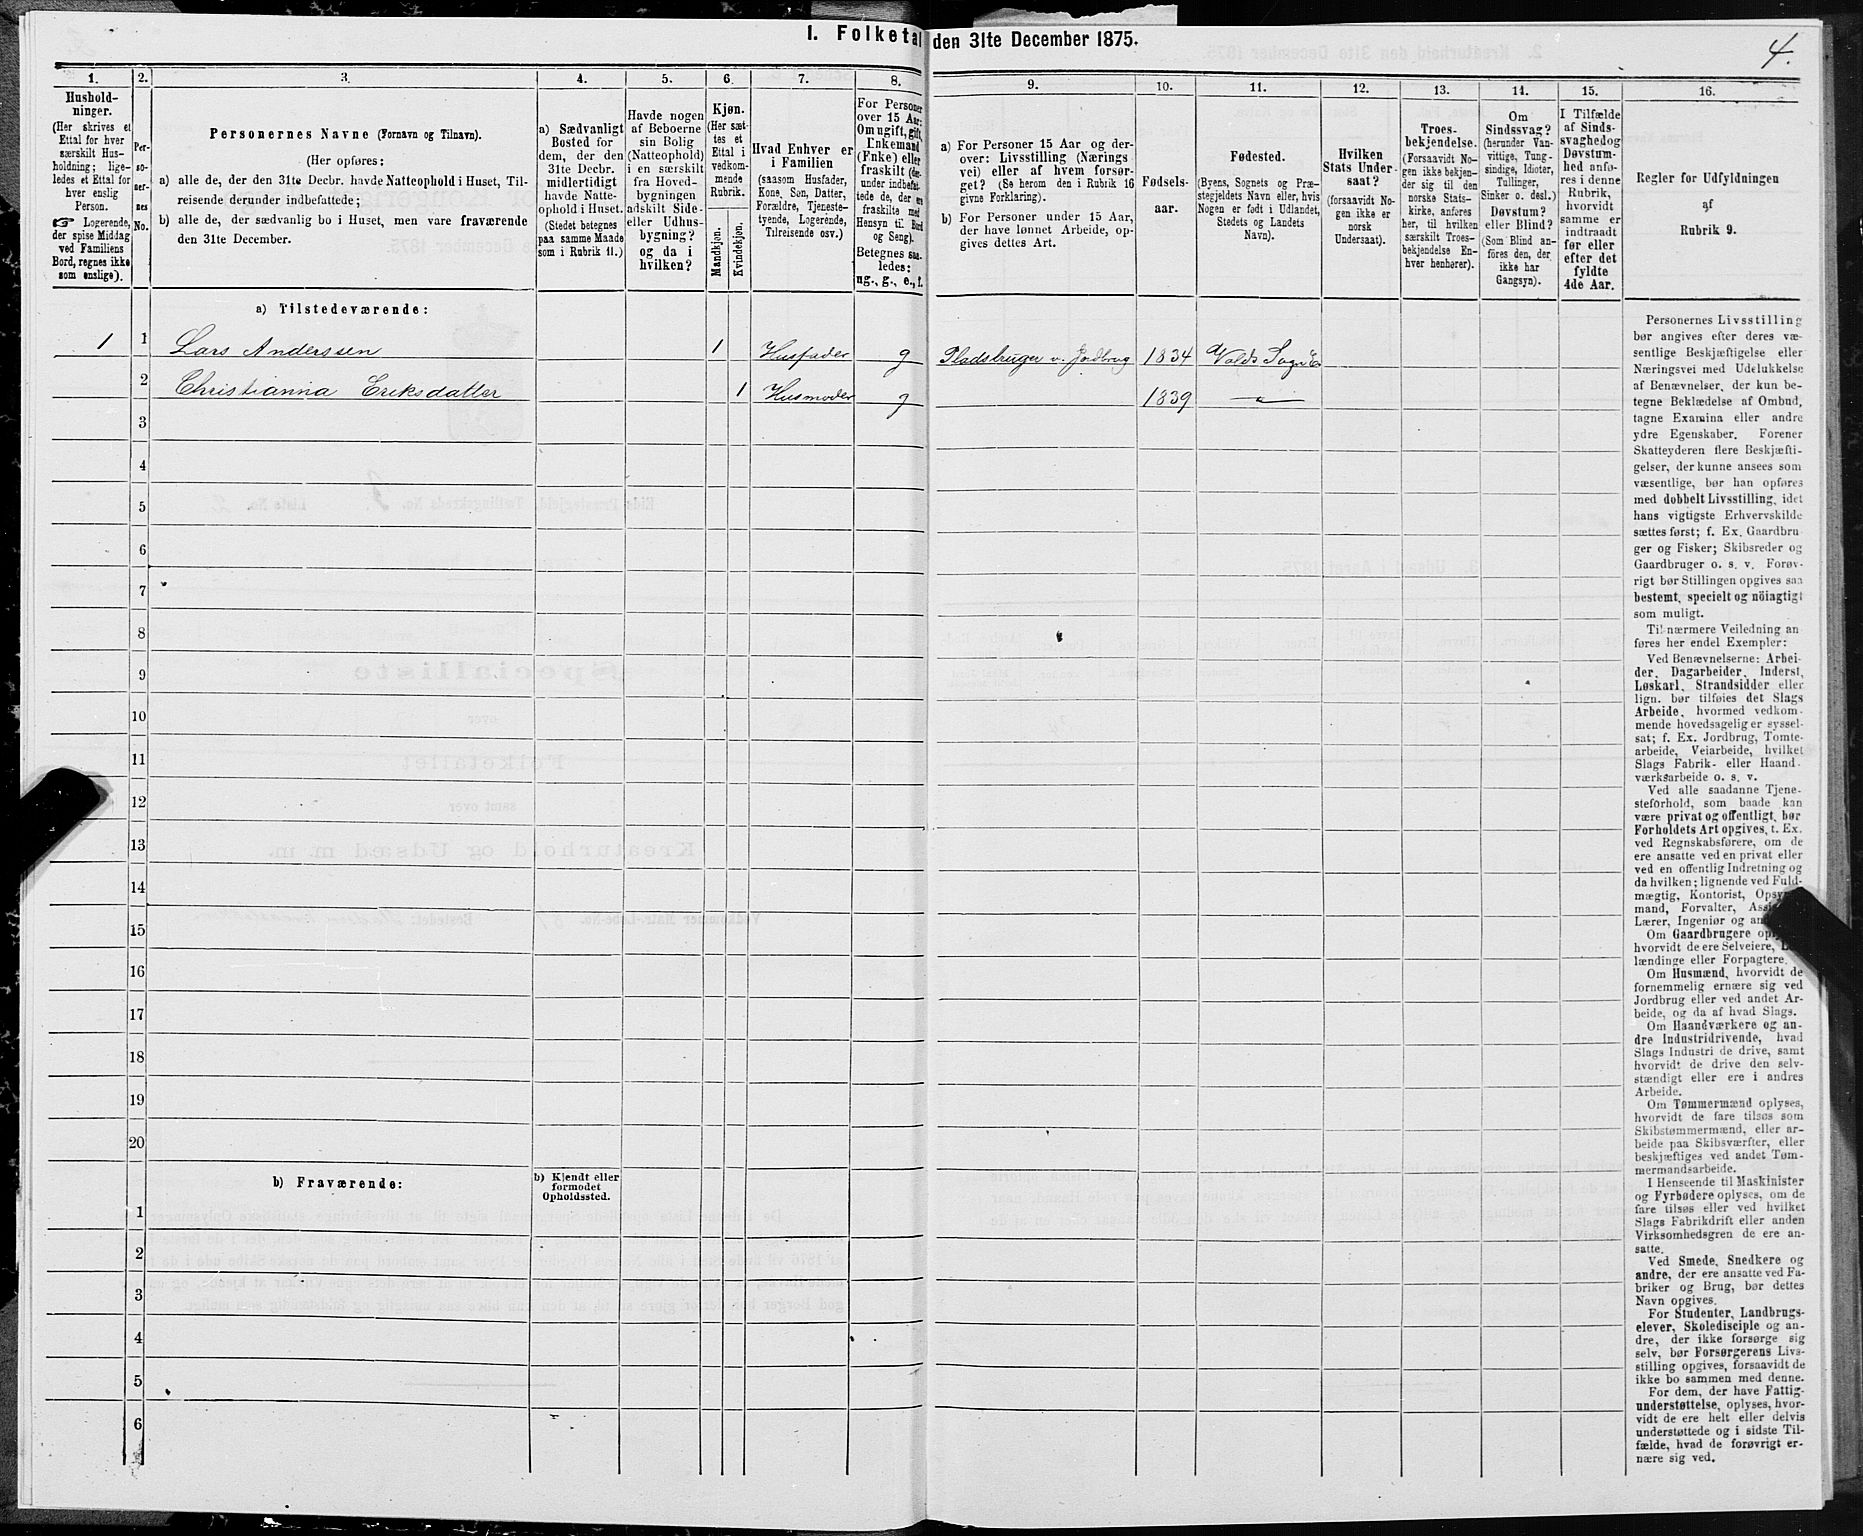 1. Folketal den 31te December 1875.
4.
1.
Hushold-
ninger.
(Her skrives et
Ettal for hver
særskilt Hus-
holdning; lige-
ledes et Ettal for
hver enslig
Person.
☞ Logerende,
der spise Middag
ved Familiens
Bord, regnes ikke
som enslige).
2.
Per-
so-
ner-
nes
No.
3.
Personernes Navne (Fornavn og Tilnavn).
(Her opføres:
a) alle de, der den 31te Decbr. havde Natteophold i Huset, Til-
reisende derunder indbefattede;
b) alle de, der sædvanlig bo i Huset, men vare fraværende
den 31te December.
4.
a) Sædvanligt
Bosted for
dem, der den
31te Decbr.
midlertidigt
havde Natte-
ophold i Huset.
(Stedet betegnes
paa samme Maade
som i Rubrik 11.)
5.
Havde nogen
af Beboerne
sin Bolig
(Natteophold)
i en særskilt
fra Hoved-
bygningen
adskilt Side-
eller Udhus-
bygning?
og da i
hvilken?
6.
Kjøn.
(Her sæt-
tes et
Ettal i
vedkom-
mende
Rubrik.
Mandkjøn.
Kvindekjøn.
7.
Hvad Enhver er
i Familien
(saasom Husfader,
Kone, Søn, Datter,
Forældre, Tjeneste-
tyende, Logerende,
Tilreisende osv.)
8.
For Personer
over 15 Aar:
Om ugift, gift,
Enkemand
(Enke) eller
fraskilt (der-
under indbefat-
tede de, der ere
fraskilte med
Hensyn til Bord
og Seng).
Betegnes saa-
ledes:
ug., g., e., f.
9.
a) For Personer 15 Aar og der-
over: Livsstilling (Nærings
vei) eller af hvem forsør-
get? (Se herom den i Rubrik 16
givne Forklaring).
b) For Personer under 15 Aar,
der have lønnet Arbeide, op-
gives dettes Art.
10.
Fødsels-
aar.
11.
Fødested.
(Byens, Sognets og Præ-
stegjeldets Navn eller, hvis
Nogen er født i Udlandet,
Stedets og Landets
Navn).
12.
Hvilken
Stats Under-
saat?
(forsaavidt No-
gen ikke er
norsk
Undersaat).
13.
Troes-
bekjendelse.
(Forsaavidt No-
gen ikke bekjen-
der sig til den
norske Stats-
kirke, anføres
her, til hvilken
særskilt Troes-
bekjendelse En-
hver henhører).
14.
Om
Sindssvag?
(herunder Van-
vittige, Tung-
sindige, Idioter,
Tullinger,
Sinker o. desl.)
Døvstum?
eller Blind?
(Som Blind an-
føres den, der
ikke har
Gangsyn).
15.
I Tilfælde
af Sinds-
svaghed og
Døvstum-
hed anfø-
res i denne
Rubrik,
hvorvidt
samme er
indtraadt
før eller
efter det
fyldte
4de Aar.
16.
Regler for Udfyldningen
af
Rubrik 9.
a) Tilstedeværende:
1 1 Lars Anderssen 1 Husfader g Pladsbruger v. Jordbrug 1834 Volds Sogn
2 Christianna Eriksdatter 1 Husmoder g 1839 — " —
3
4
5
6
7
8
9
10
11
12
13
14
15
16
17
18
19
20
b) Fraværende:
b) Kjendt eller
formodet
Opholdssted.
1
2
3
4
5
6
Personernes Livsstilling
bør angives efter deres væ-
sentlige Beskjæftigelse eller
Næringsvei med Udelukkelse
af Benævnelser, der kun be-
tegne Beklædelse af Ombud,
tagne Examina eller andre
ydre Egenskaber. Forener
Skatteyderen flere Beskjæfti-
gelser, der kunne ansees som
væsentlige, bør han opføres
med dobbelt Livsstilling, idet
hans vigtigste Erhvervskilde
sættes først; f. Ex. Gaardbru
ger og Fisker; Skibsreder og
Gaardbruger o. s. v. Forøv-
rigt bør Stillingen opgives saa
bestemt, specielt og nöiagtigt
som muligt.
Til nærmere Veiledning an
føres her endel Exempler:
Ved Benævnelserne: Arbei-
der, Dagarbeider, Inderst,
Løskarl, Strandsidder eller
lign. bør tilføies det Slags
Arbeide, hvormed vedkom-
mende hovedsagelig er syssel-
sat; f. Ex. Jordbrug, Tomte-
arbeide, Veiarbeide, hvilket
Slags Fabrik- eller Haand-
værksarbeide o. s. v.
Ved alle saadanne Tjene-
steforhold, som baade kan
være privat og offentligt, bør
Forholdets Art opgives, t. Ex.
ved Regnskabsførere, om de
ere ansatte ved en privat eller
ved en offentlig Indretning og
da hvilken; lignende ved Fuld-
mægtig, Kontorist, Opsyns-
mand, Forvalter,
Lærer, Ingeniør og
Om Gaardbrugere
hvorvidt de ere Selveiere,
lændinge eller Forpagtere.
Om Husmænd, hvorvidt de
fornemmelig ernære sig ved
Jordbrug eller ved andet Ar-
beide, og da af hvad Slags.
Om Haandværkere og an-
dre Industridrivende, hvad
Slags Industri de drive, samt
hvorvidt de drive den selv-
stændigt eller ere i andres
Arbeide.
Om Tømmermænd oplyses,
hvorvidt de fare tilsøs som
Skibstømmermænd, eller ar-
beide paa Skibsværfter, eller
beskjæftiges ved andet Tøm-
mermandsarbeide.
I Henseende til Maskinister
og Fyrbødere oplyses, om de
fare tilsøs eller ved hvilket
Slags Fabrikdrift eller anden
Virksomhedsgren de ere an-
satte.
Ved Smede, Snedkere og
andre, der ere ansatte ved Fa-
briker og Brug, bør dettes
Navn opgives.
For Studenter, Landbrugs-
elever, Skoledisciple og an-
dre, der ikke forsørge sig
selv, bør Forsørgerens Livs-
stilling opgives, forsaavidt de
ikke bo sammen med denne.
For dem, der have Fattig-
understøttelse, oplyses, hvor-
vidt de ere helt eller delvis
understøttede og i sidste Til-
fælde, hvad de forøvrigt er-
nære sig ved.